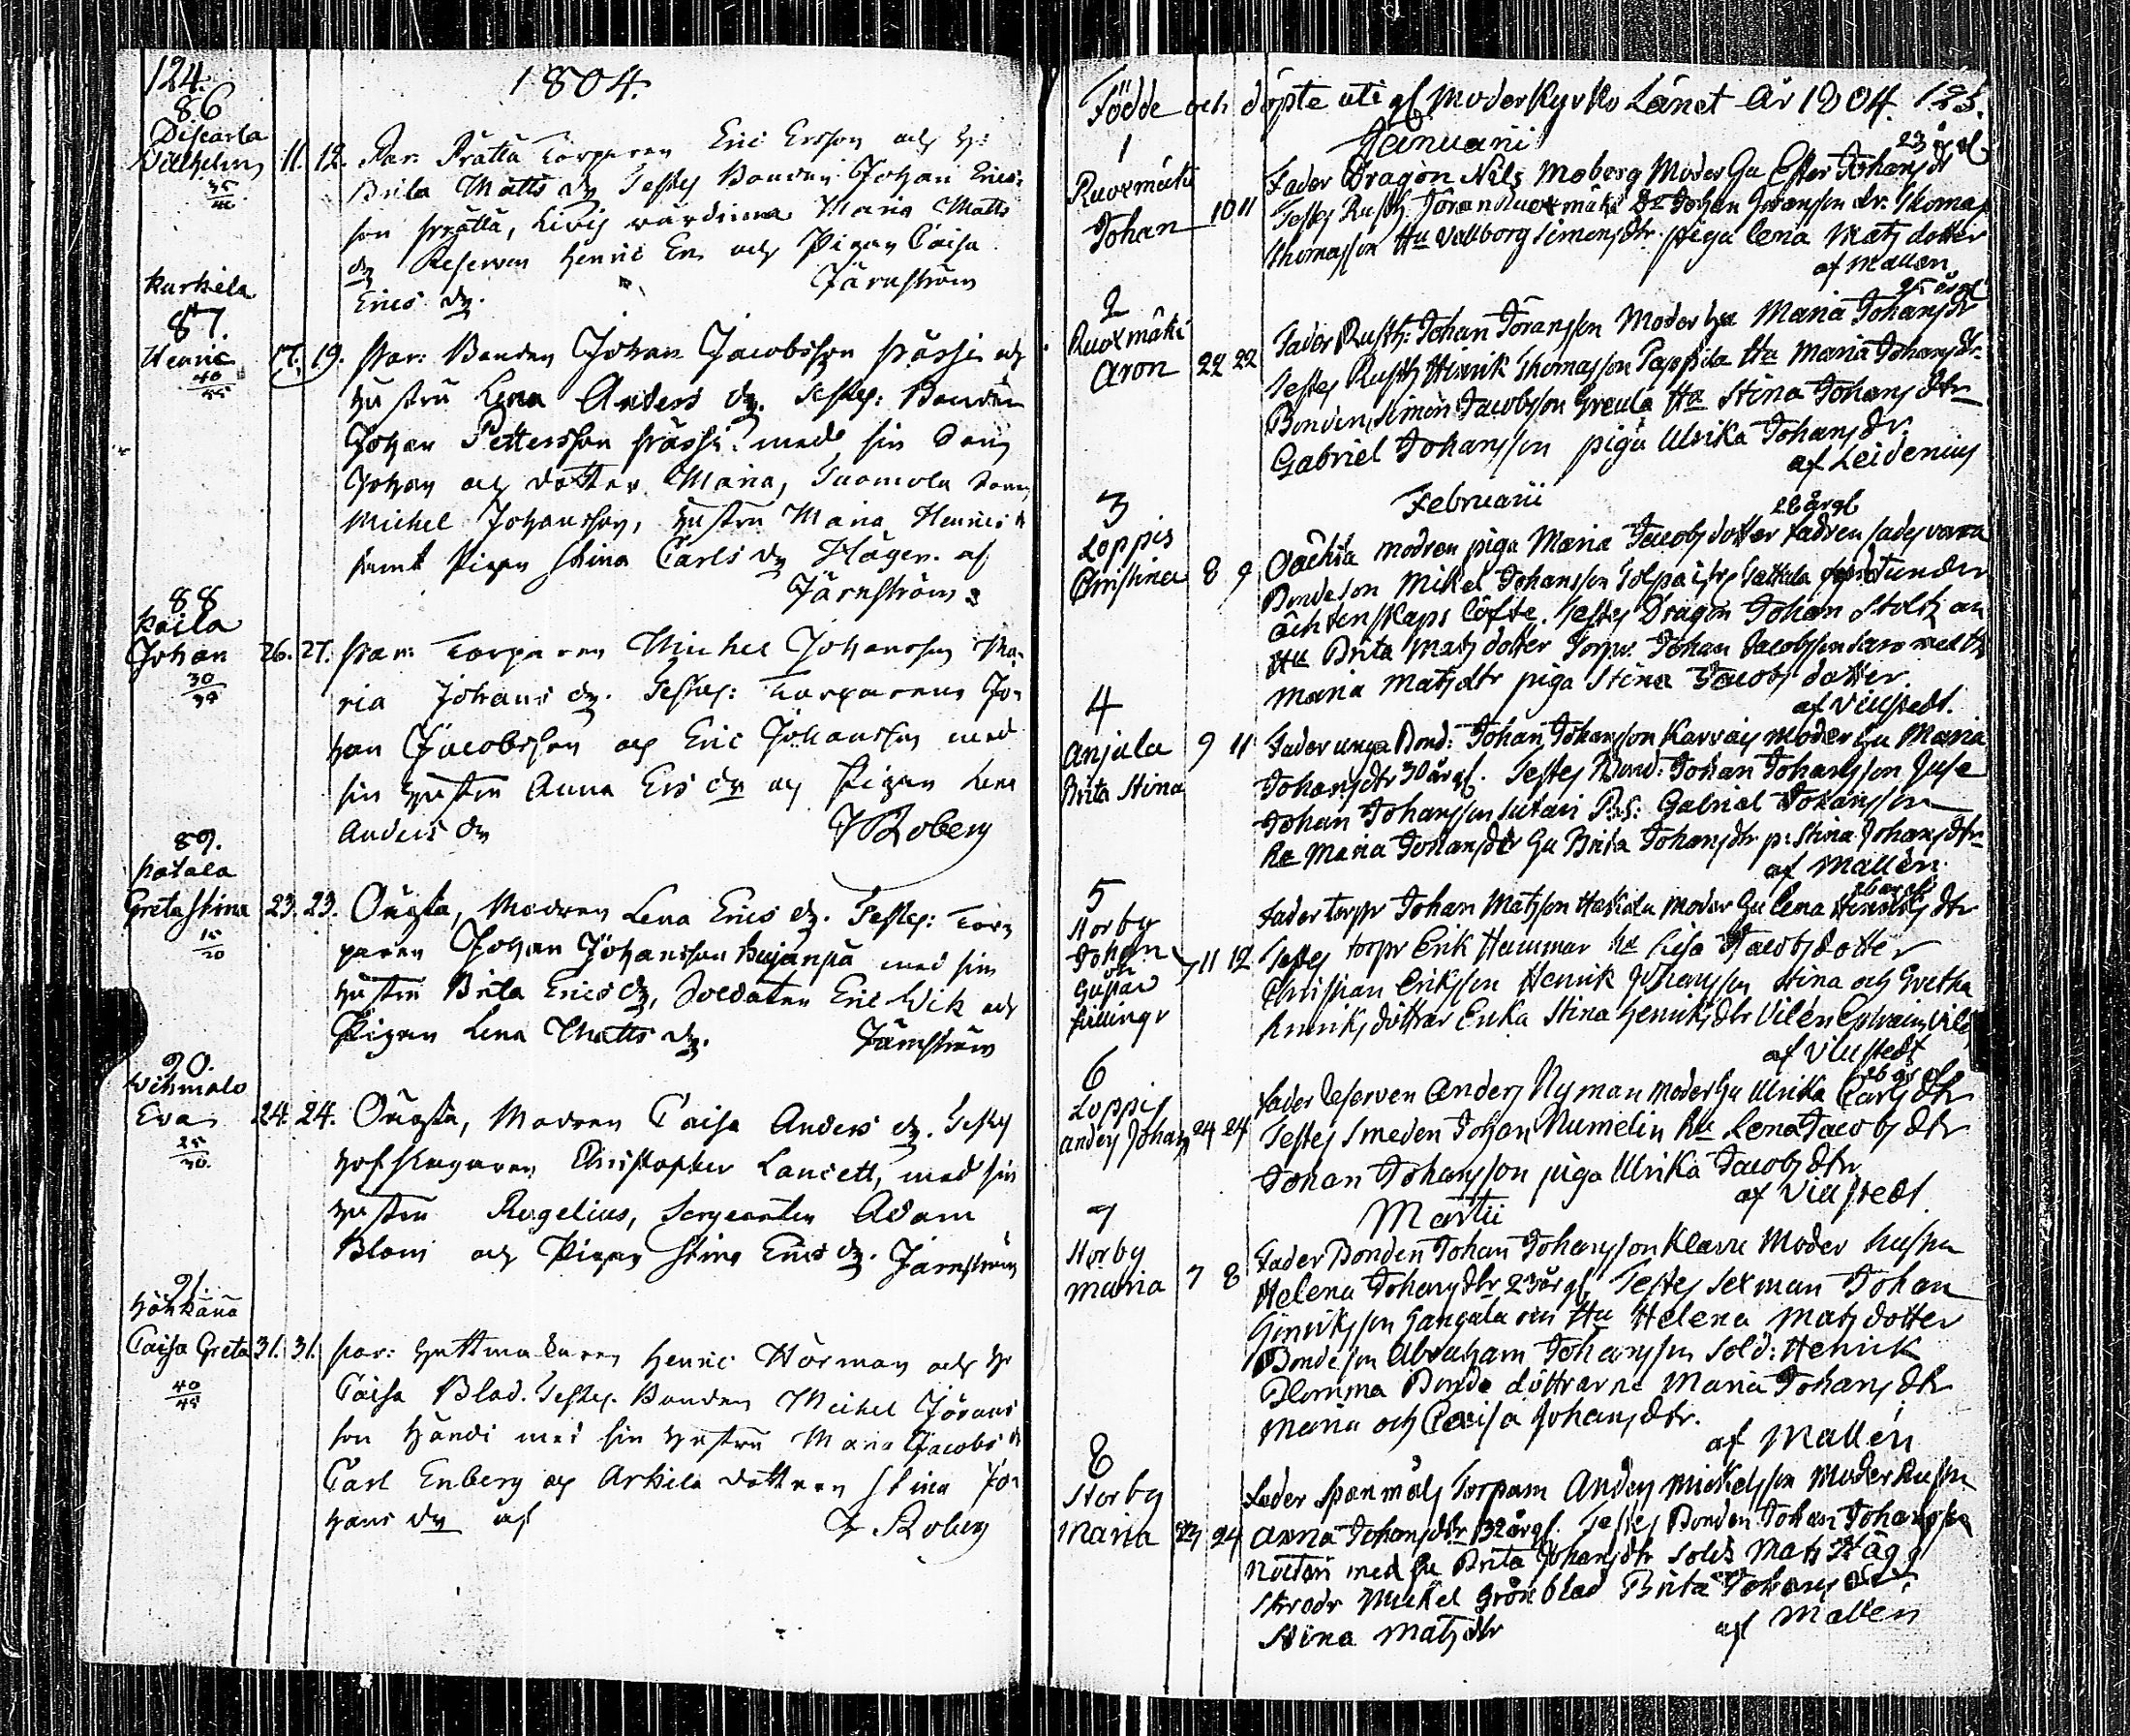 124.
1804.
86
Villhelm 11. 12. Par: Prättä Torparen Eric Ersson och H:
35
Brita Matts dr Testes Bonden Johan Erics
son Prättä, Livis värdinna Maria Matts
dr Reserven Henric En och Pigan Caisa
Erics dr. Järnström
Kurkela
87.
Henric 17. 19. Par: Bonden Johan Jacobsson Prässi och
40
45
Hustru Lena Anders dr. Testes: Bonden
Johan Pettersson Prässi med sin Son
Johan och dotter Maria, Tuomola Son
Michel Johansson, Hustru Maria Henrics dr
samt Pigan Stina Carls dr Häger. af
Järnström
88
Paila
Johan 26. 27. Par: Torparen Michel Johansson Ma-
30
ria Johans dr. Testes: Torparene Jo-
han Jacobsson och Eric Johansson med
sin Hustru Anna Ers dr och Pigan Lena
Anders dr
89.
Patala
Greta Stina 23. 23. Oägta, Modren Lena Erics dr. Testes: Tor-
15
20
paren Johan Johansson Bujanpä med sin
Hustru Brita Erics dr, Soldaten Eric Wik och
Pigan Lena Matts dr. Järnström
90.
Wihmalo
Eva 24. 24. Oägta, Modren Caisa Anders dr. Testes
25
30.
Hofslagaren Christopher Lancett, med sin
Hustru Rogelius, Sergeanten Adam
Blom och Pigan Stina Erics dr. Järnström
91.
Caisa Greta 31. 31. Par: Hattmakaren Henric Hörman och H
40
45
Caisa Blad. Testes. Bonden Michel Jörans
son Händi med sin Hustru Maria Jacobs dr
Carl Enberg och Arkila dottren Stina Jo-
hans dr af
Födde och döpte uti gl Moderkyrko Länet År 1804. 125.
Januarii
1 23 år gl
Ruoxmäki Fader Dragon Nils Moberg Moder Hu Ester Johans dr
Johan 10 11 Testes Rusth Jöran Ruoxmäki Dr Johan Joransson dr: Thomas
Thomasson Hu Vallborg Simons dtr. piga Lena Mats dotter
af Mallén
2 25 år gl
Ruoxmäki Fader Rusth: Johan Joransson Moder Hu Maria Johans dr
Aron 22 22 Testes Rusth Hinrik Thomasson Pappila Hu Maria Johans dr.
Bonden Simon Jacobsson Greula Hu Stina Johans dtr
Gabriel Johansson piga Ulrika Johans dr.
af Leidenius
Februarii
3 28 år gl
Loppis Oächta modren piga Maria Jacobs dotter fadren sades vara
Christina 8 9 Bondeson Mikel Johansson under
ächtenskaps löfte. Testes Dragon Johan Stolt
Hu Brita Mats dotter Torpr. Johan Jacobsson med Hu
Maria Mats dtr piga Stina Jacobs dotter.
af Villstedt.
4
Anjala 9 11 Fader unga Bond: Johan Johansson Karvais moder Hu Maria
Brita Stina Johans dtr 30 år gl. Testes Bond: Johan Johansson Juse
Johan Johansson Sutari B.S: Gabriel Johansson
Hu Maria Johans dtr Hu Brita Johans dtr p: Stina Johans dtr
af Mallén
5
Storby Fader torpr Johan Matsson Haskala Moder Hu Lena Hinriks dtr
Johan
och
Gustav 11 12 Testes torpr Erik Hammar Hu Lisa Jacobs dotter
tvillingr Christian Eriksson Henrik Johansson Stina och Gretha
Henriks döttrar Erika Stina Henriks dtr Vilén
af Villstedt
6 26 år gl
Loppis Fader Reserven Anders Nyman Moder Hu Ulrika Carls dtr
Anders Johan 24 24 Testes Smeden Johan Numelin Hu Lena Jacobs dtr
Johan Johansson piga Ulrika Jacobs dtr
af Villstedt.
Martii
7
Storby Fader Bonden Johan Johansson Klavu Moder hustru
Maria 7 8 Helena Johans dtr 23 år gl, Testes Sexman Johan
Hinriksson Gangala Hu Helena Mats dotter
Bondeson Abraham Johansson Sold: Henrik
Blomma Bonde döttrarne Maria Johans dtr
Maria och Caisa Johans dtr.
af Mallén
8
Storby Fader Spanmåls Torparn Anders Mickelsson Moder Hustru
Maria 23 24 Anna Johans dtr 32 år gl. Testes Bonden Johan Johansson
Nottari med Hu Brita Johans dtr Sold: Mats Hägg
Skrädr Mickel Grönblad Brita Johans dtr
Stina Mats dtr af Mallén